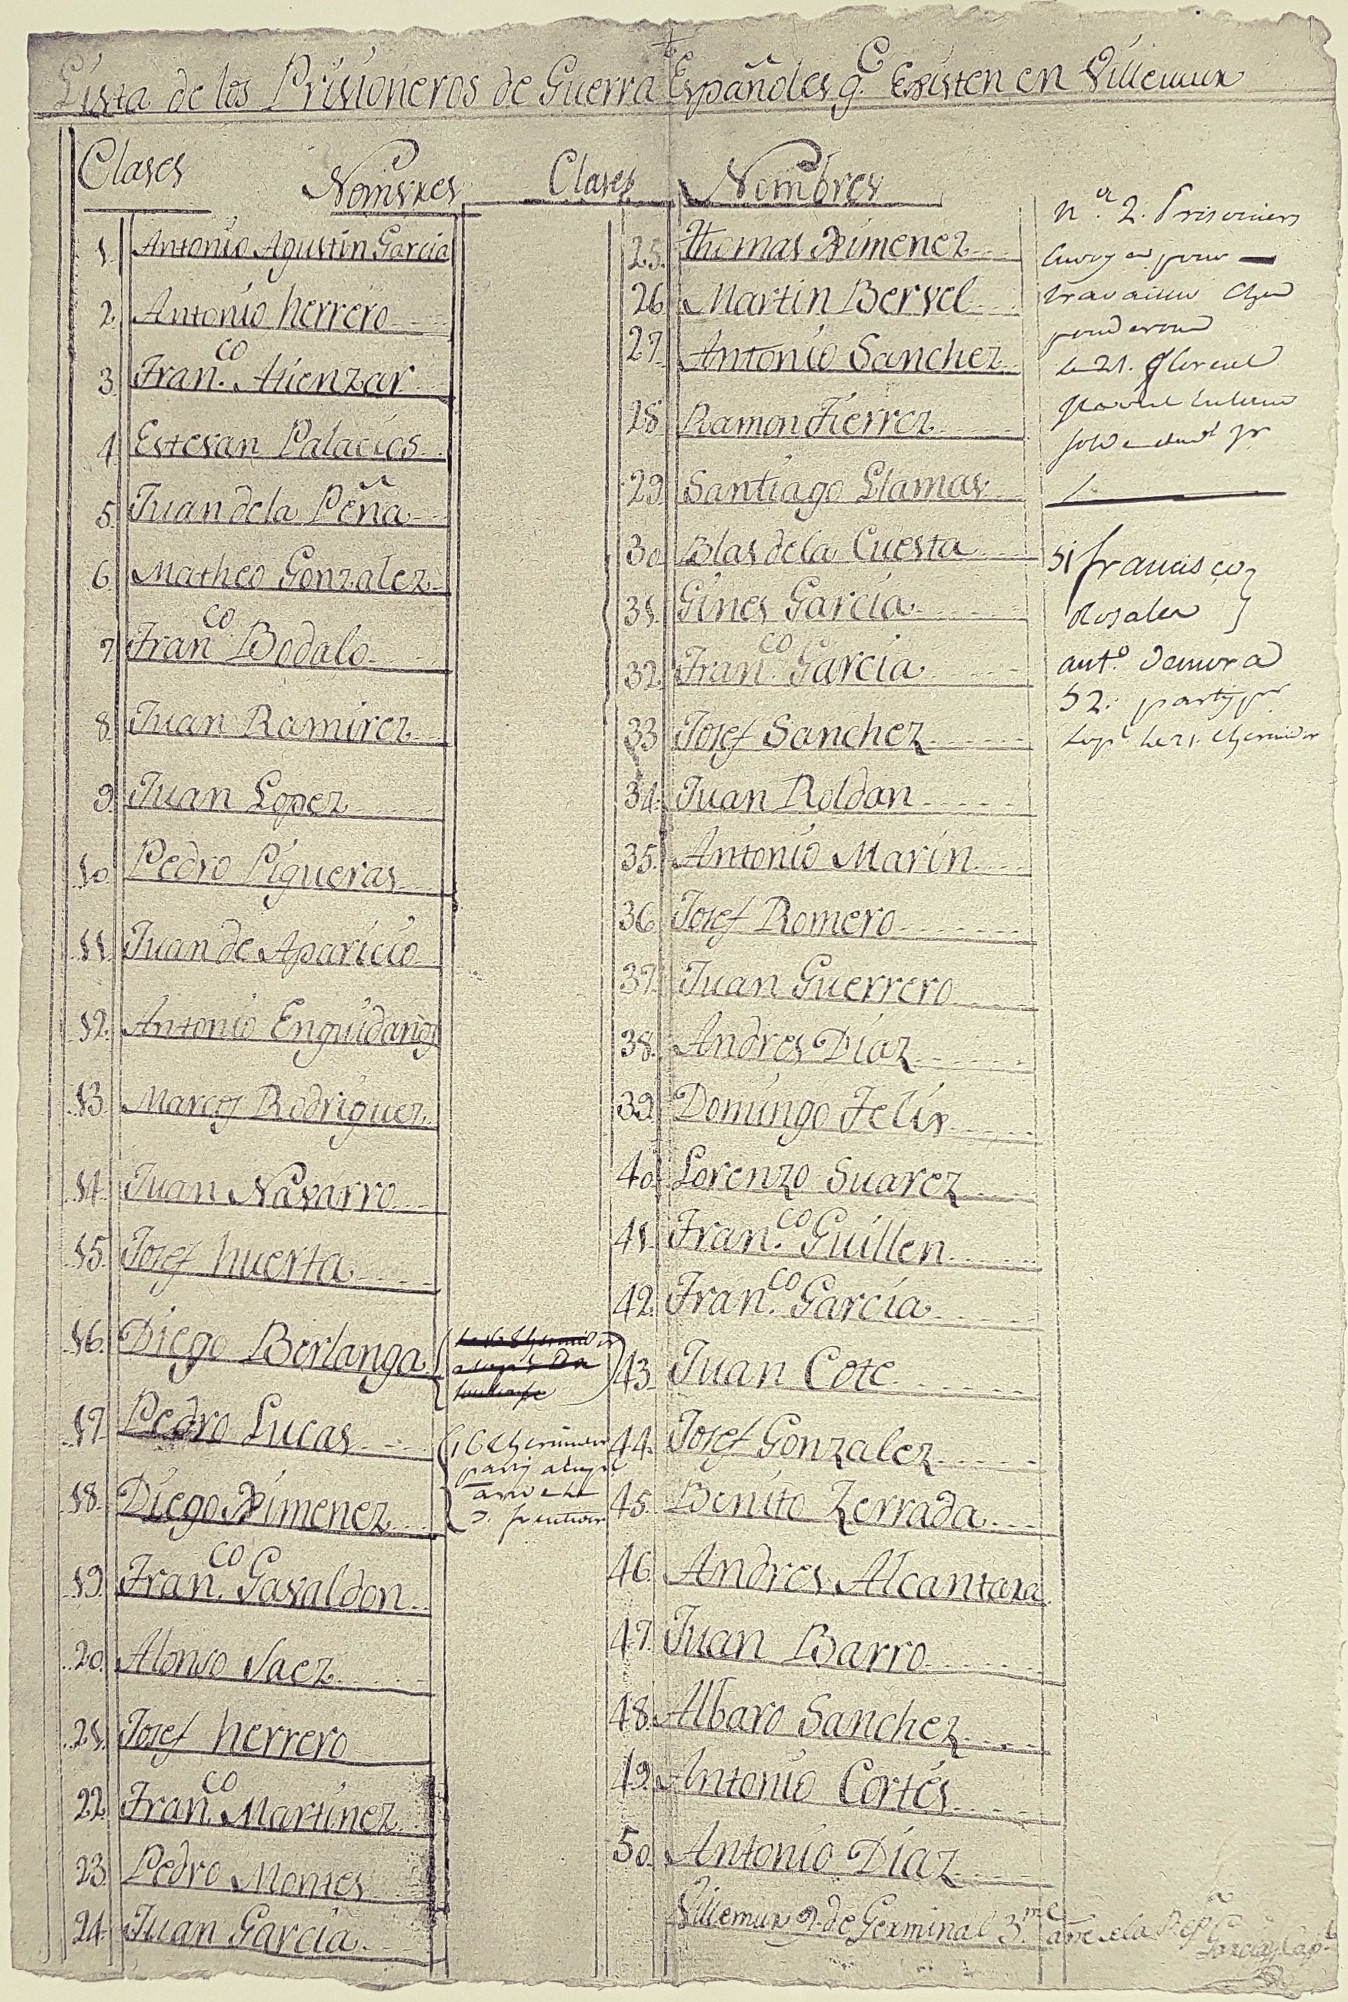 Lista de los Prisioneros de Guerra Españoles q.e Existen en Villemur
Clases Nombres Clases Nombres
1. Antonio Agustin Garcia
2. Antonio herrero
3. Fran.co Atienzar
4. Estevan Palacios
5. Juan de la Peña
6. Matheo Gonzalez
7. Fran.co Bodalo
8. Juan Ramirez
9. Juan Lopez
10. Pedro Pigueras
11. Juan de Aparicio
12. Antonio Enguidanos
13. Marcos Rodriguez
14. Juan Navarro
15. Josef huerta
16. Diego Berlanga
17. Pedro Lucas
18. Diego Ximenez
19. Fran.co Gavaldon
20. Alonso Saez
21. Josef herrero
22. Fran.co Martinez
23. Pedro Montes
24. Juan Garcia
16 thermidor
25. Thomas Ximenez
26. Martin Bervel
27. Antonio Sanchez
28. Ramon Fierrez
29. Santiago Llamas
30. Blas de la Cuesta
31. Gines Garcia
32. Fran.co Garcia
33. Josef Sanchez
34. Juan Roldan
35. Antonio Marin
36. Josef Romero
37. Juan Guerrero
38. Andres Diaz
39. Domingo Felix
40. Lorenzo Suarez
41. Fran.co Guillen
42. Fran.co Garcia
43. Juan Cote
44. Josef Gonzalez
45. Benito Zerrada
46. Andres Alcantara
47. Juan Barro
48. Albaro Sanchez
49. Antonio Cortés
50. Antonio Diaz
Villemur 9 de Germinal 3.me año de la Rep.ca
n.° 2. Prisoniers
pour
le 21. floreal
51 francisco
Rosales
ant.°
52. party p.r
le 21. thermidor